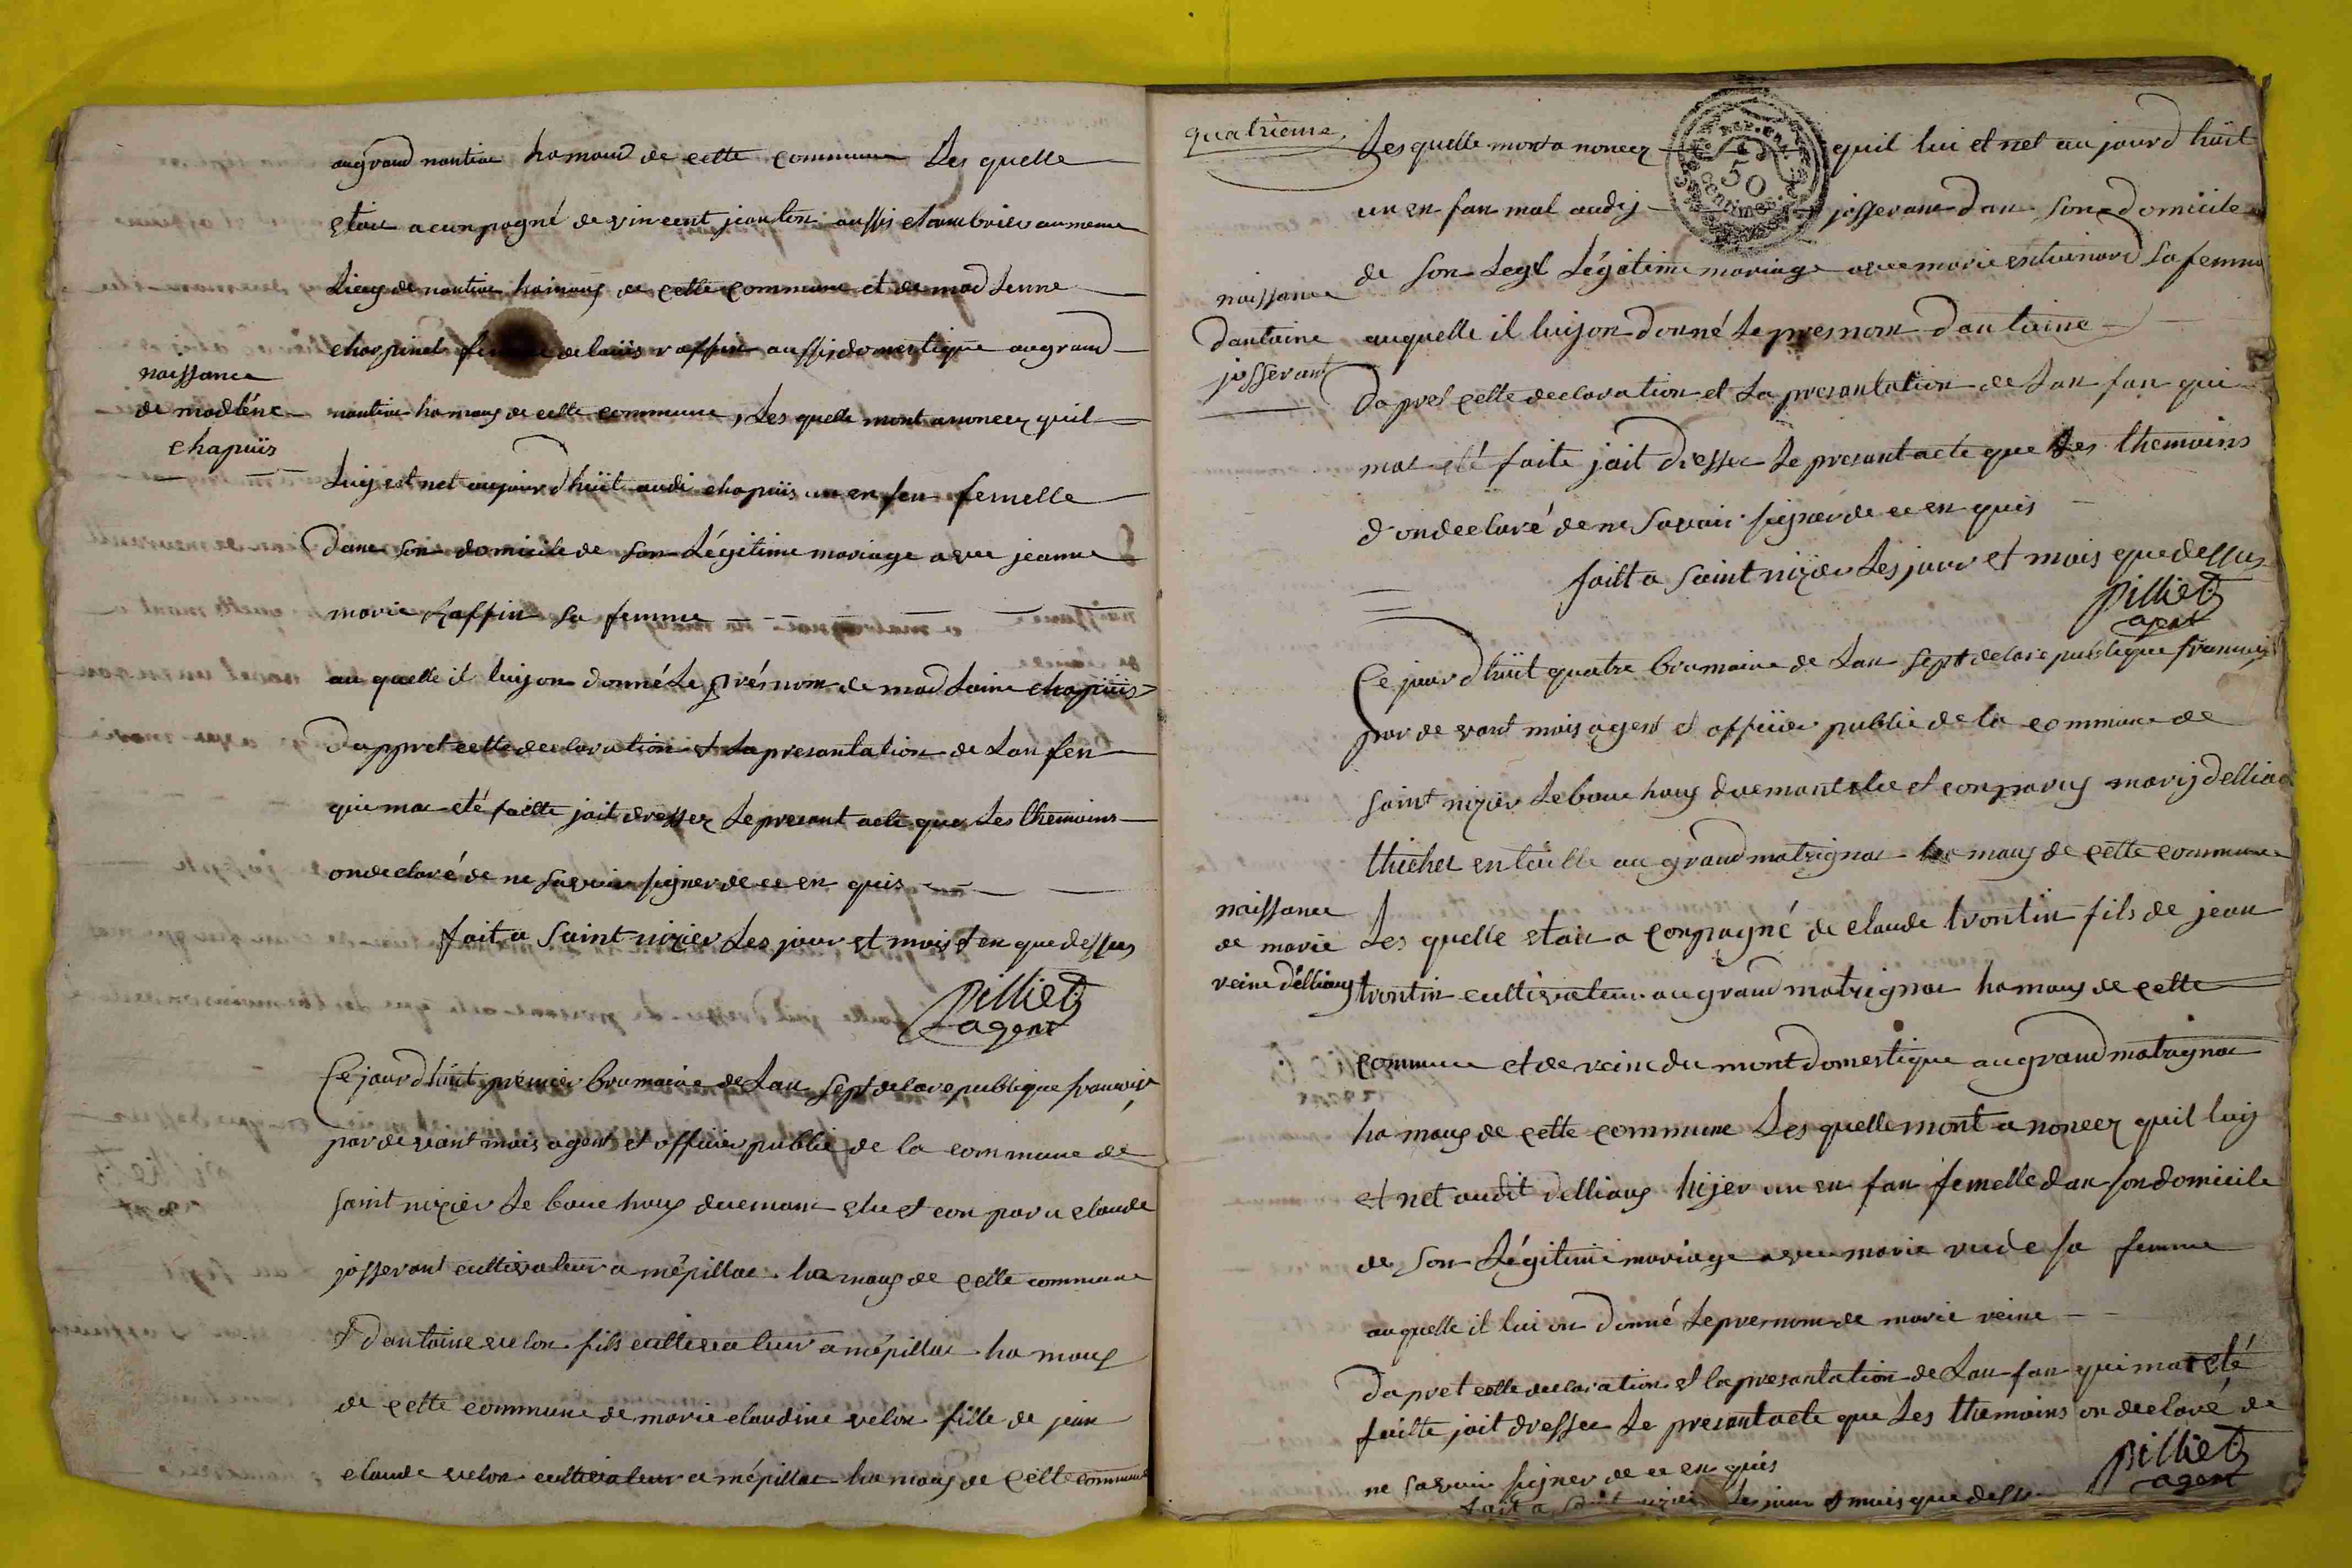 augrand nantiue hamaud de cette commune Les quelle
etoit acunpagné de vincent jeanton aussis chambrier aumeme
Lieuy de nantiue hamauy de cette commune et de mad Lenne
charpinel de louis raffin aussis domestique augrand
naissance
de madléne
chapuis
nantiue hamauy de cette commune, Les quelle mont anoncez quil
Luy et net aujourd huit audi chapuis un en fen femelle
Dans son domicile de son Légitime mariage avec jeanne
marie Raffin sa femme
au quelle il luy on donné Le présnom de mad Laine chapuis
Dappret cette declaration et La presantation de Lan fen
qui ma eté faitte jait dressez Le presant acte que Les themoins
on declaré de ne savoir signer de ce en quis
fait a Saint nizier Les jour et mois et en que dessus
pilliet
agent
Ce jourd huit premier brumaire de Lan Sept de lare publique francaise
par de vant mois agent et officier public de la commune de
saint nizier Le bouchouy duemant elu et con paru claude
josserant cultivateur a mépillat hamauy de cette commune
et dantoine velon fils cultivateur a mépillat hamauy
de cette commune de marie claudine velon fille de jean
claude velon cultivateur a mépillat hamauy de cette commune
quatrieme
Les quelle mont a noncez quil lui et net au jourd huit
un en fan mal audij josserant dan son domicile
de son Legt Légitime mariage avec marie sa femme
naissance
dantoine
josserant
auquelle il luy on donné Le presnom dan toine
Dapret cette declaration et La presantation de Lan fan qui
ma eté faite jait dresser Le presant acte que Les themoins
d'on declaré de ne savoir signer de ce en quis
fait a Saint nizier Les jour et mois que dessus
pilliet
agent
Ce jourd huit quatre brumaire de Lan Sept de lare publique francaise
par de vant mois agent et officier public de la commune de
saint nizier Le bouchouy duemant elu et conparuy
au grand matrignat hamauy de cette commune
naissance
de marie
reine délliauy
Les quelle etoit a conpagné de claude trontin fils de jean
trontin cultivateur au grand matrignat hamauy de cette
commune et de reine dumont domestique augrand matrignat
hamauy de cette commune Les quelle mont a noncez quil luy
et net audit delliauy hijer un en fan femelle dan son domicile
de son Légitime mariage avec marie sa femme
auquelle il lui on donné Le presnom de marie reine
Dapret cette declaration et la presantation de Lan fan qui ma eté
faitte jait dresser Le presant acte que Les themoins on declaré de
ne savoir signer de ce en quis
fait a Saint nizier Les jour et mois que dessus
pilliet
agent